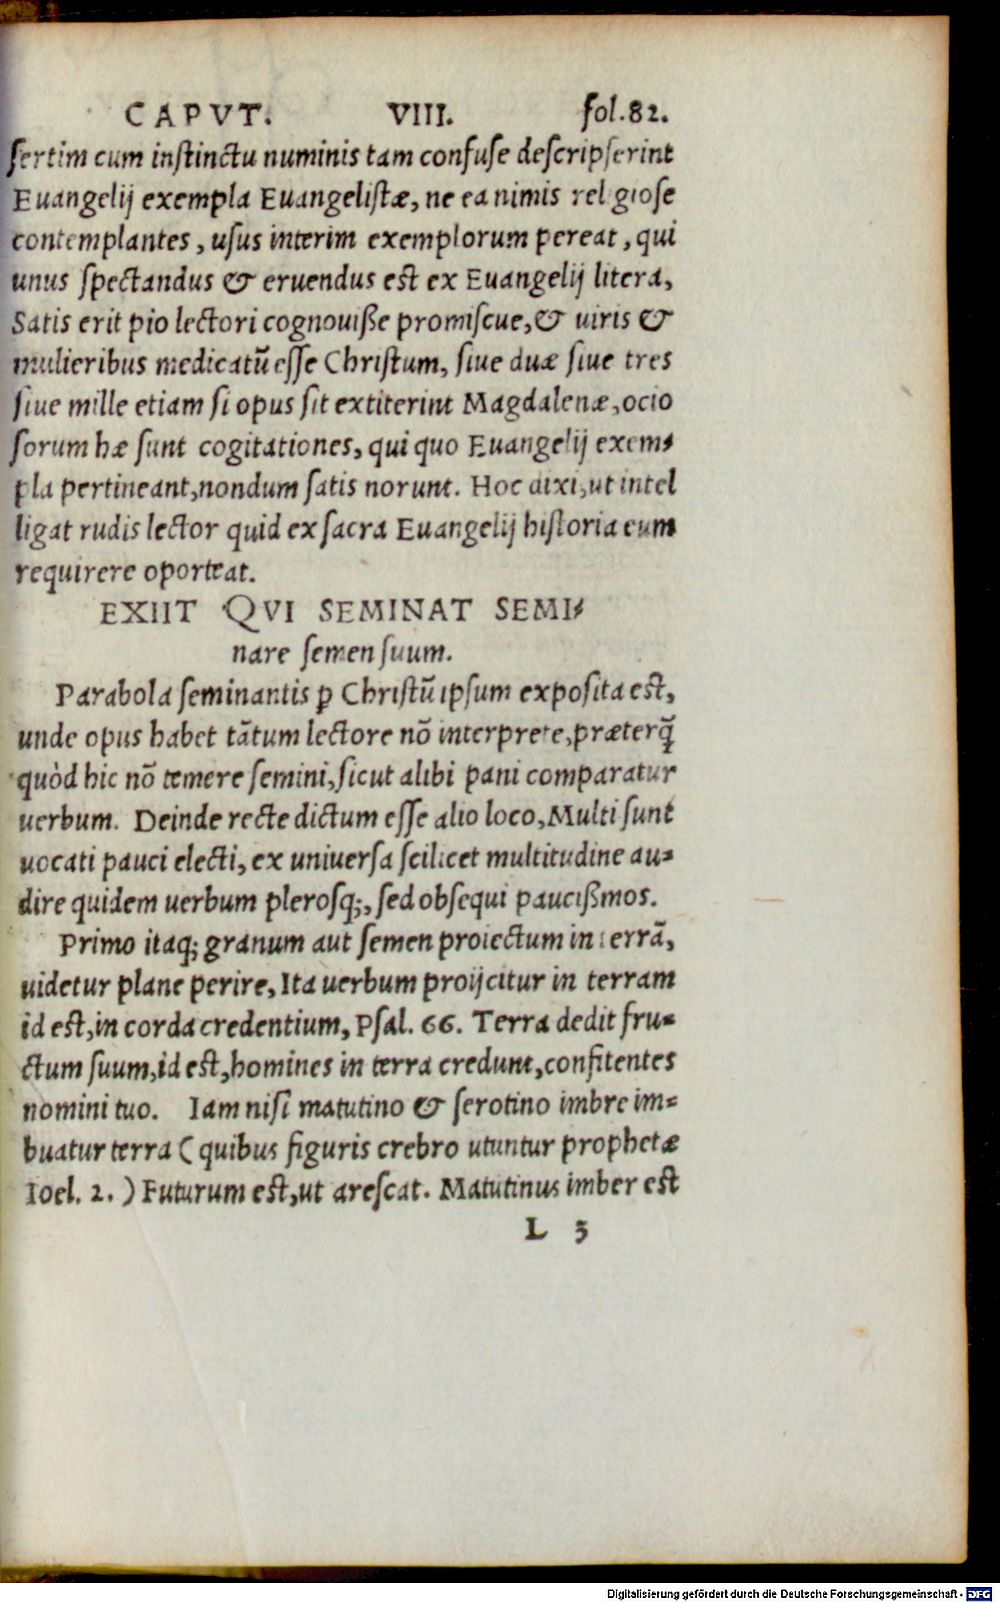 CAPVT. VIII. fol.82.
ſertim cum inſtinctu numinis tam confuſe deſcripſerint
Euangelij exempla Euangeliſtæ, ne ea nimis rel gioſe
contemplantes, uſus interim exemplorum pereat, qui
unus ſpectandus & eruendus est ex Euangelij litera,
Satis erit pio lectori cognouiſſe promiſcue, & uiris &
mulieribus medicatū eſſe Chriſtum, ſiue duæ ſiue tres
ſiue mille etiam ſi opus ſit extiterint Magdalenæ, ocio
ſorum hæ ſunt cogitationes, qui quo Euangelij exem-
pla pertineant, nondum ſatis norunt. Hoc dixi, ut intel
ligat rudis lector quid ex ſacra Euangelij hiſtoria eum
requirere oporteat.
EXIIT QVI SEMINAT SEMI-
nare ſemen ſuum.
Parabola ſeminantis ꝑ Chriſtū ipſum expoſita est,
unde opus habet tātum lectore nō interprete, præterq̃
quòd hic nō temere ſemini, ſicut alibi pani comparatur
uerbum. Deinde recte dictum eſſe alio loco, Multi ſunt
uocati pauci electi, ex uniuerſa ſcilicet multitudine au-
dire quidem uerbum plerosq;, ſed obſequi pauciſſmos.
Primo itaq; granum aut ſemen proiectum in terrā,
uidetur plane perire, Ita uerbum proijcitur in terram
id est, in corda credentium, Pſal. 66. Terra dedit fru-
ctum ſuum, id est, homines in terra credunt, confitentes
nomini tuo. Iam niſi matutino & ſerotino imbre im-
buatur terra (quibus figuris crebro utuntur prophetæ
Ioel. 2.) Futurum est, ut areſcat. Matutinus imber est
L 3
Digitalisierung gefördert durch die Deutsche Forschungsgemeinschaft - DFG